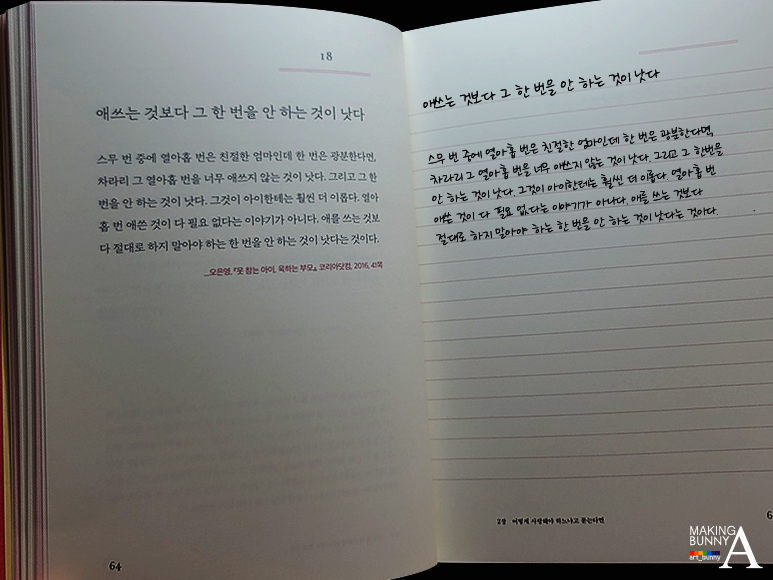 18
애쓰는 것보다 그 한 번을 안 하는 것이 낫다
스무 번 중에 열아홉 번은 친절한 엄마인데 한 번은 광분한다면,
차라리 그 열아홉 번을 너무 애쓰지 않는 것이 낫다. 그리고 그 한
번을 안 하는 것이 낫다. 그것이 아이한테는 훨씬 더 이롭다. 열아
홉 번 애쓴 것이 다 필요 없다는 이야기가 아니다. 애를 쓰는 것보
다 절대로 하지 말아야 하는 한 번을 안 하는 것이 낫다는 것이다.
_오은영, 『못 참는 아이, 욱하는 부모』, 코리아닷컴, 2016, 41쪽
64
애쓰는 것보다 그 한 번을 안 하는 것이 낫다
스무 번 중에 열아홉 번은 친절한 엄마인데 한 번은 광분한다면,
차라리 그 열아홉 번을 너무 애쓰지 않는 것이 낫다. 그리고 그 한번을
안 하는 것이 낫다. 그것이 아이한테는 훨씬 더 이롭다. 열아홉 번
애쓴 것이 다 필요 없다는 이야기가 아니다. 애를 쓰는 것보다
절대로 하지 말아야 하는 한 번을 안 하는 것이 낫다는 것이다.
2장 어떻게 사랑해야 하느냐고 묻는다면
6
MAKING
BUNNY
art_bunny
A